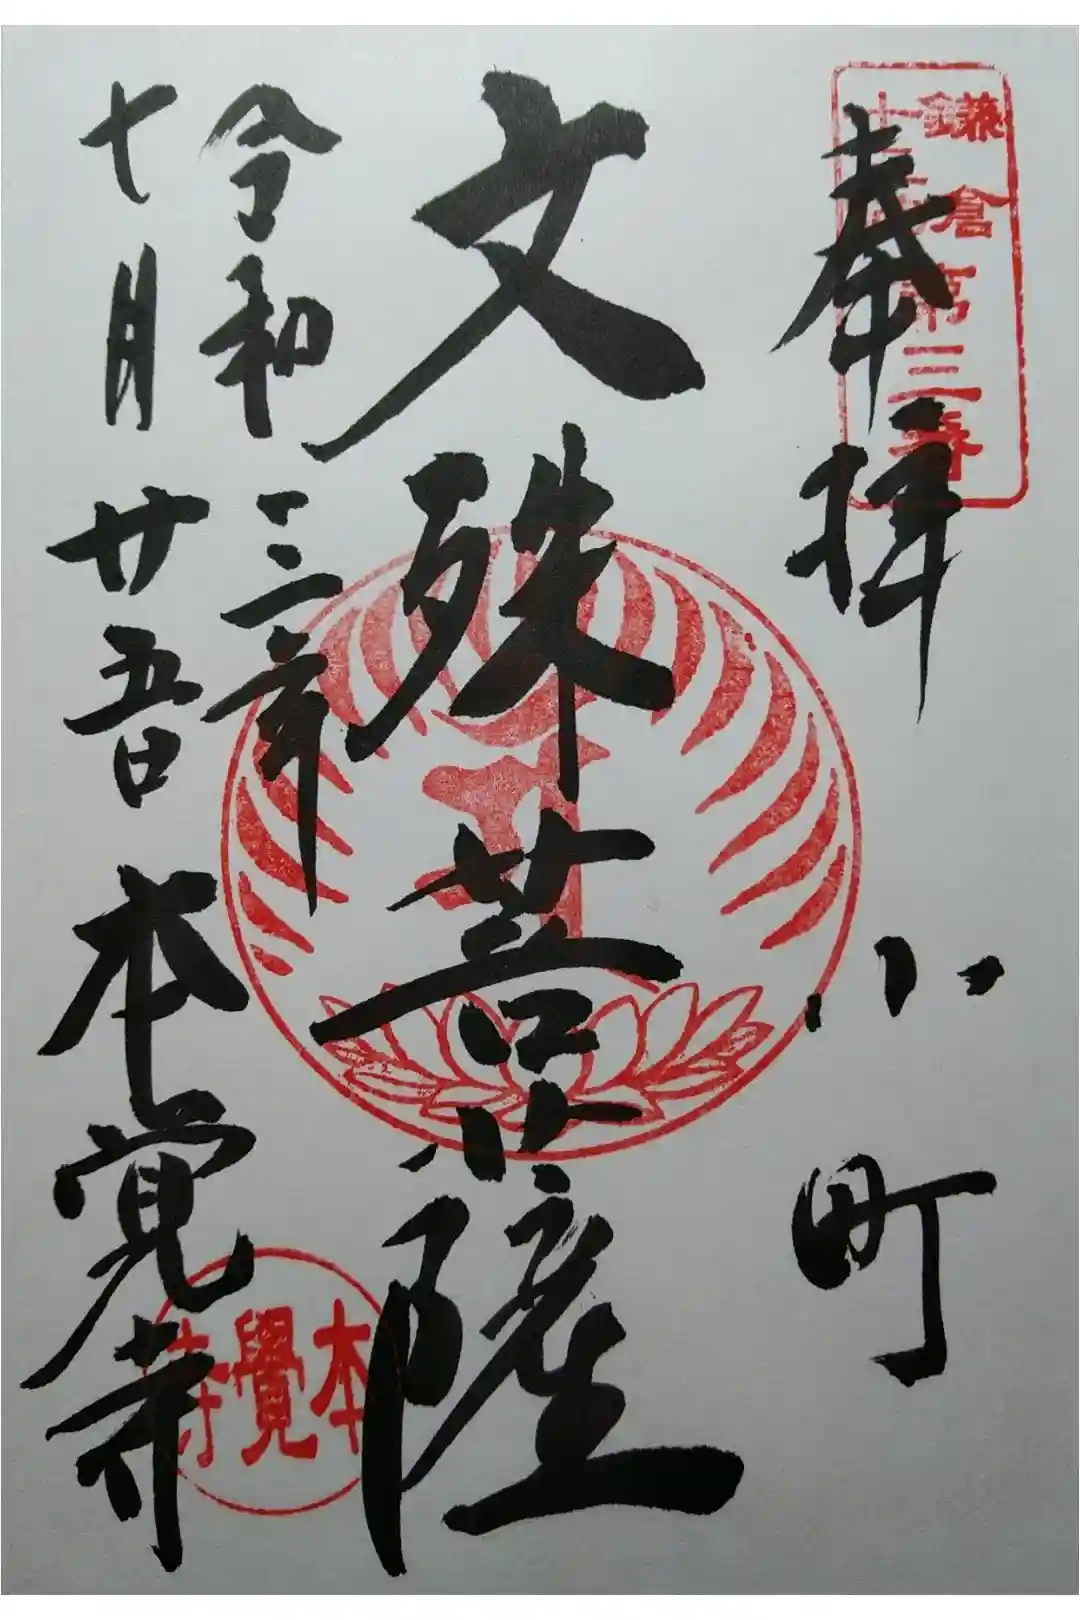 奉拝
鎌倉
十三仏
第三番
小町
文殊菩薩
令和三年
七月廿五日
本覚寺
本覺寺